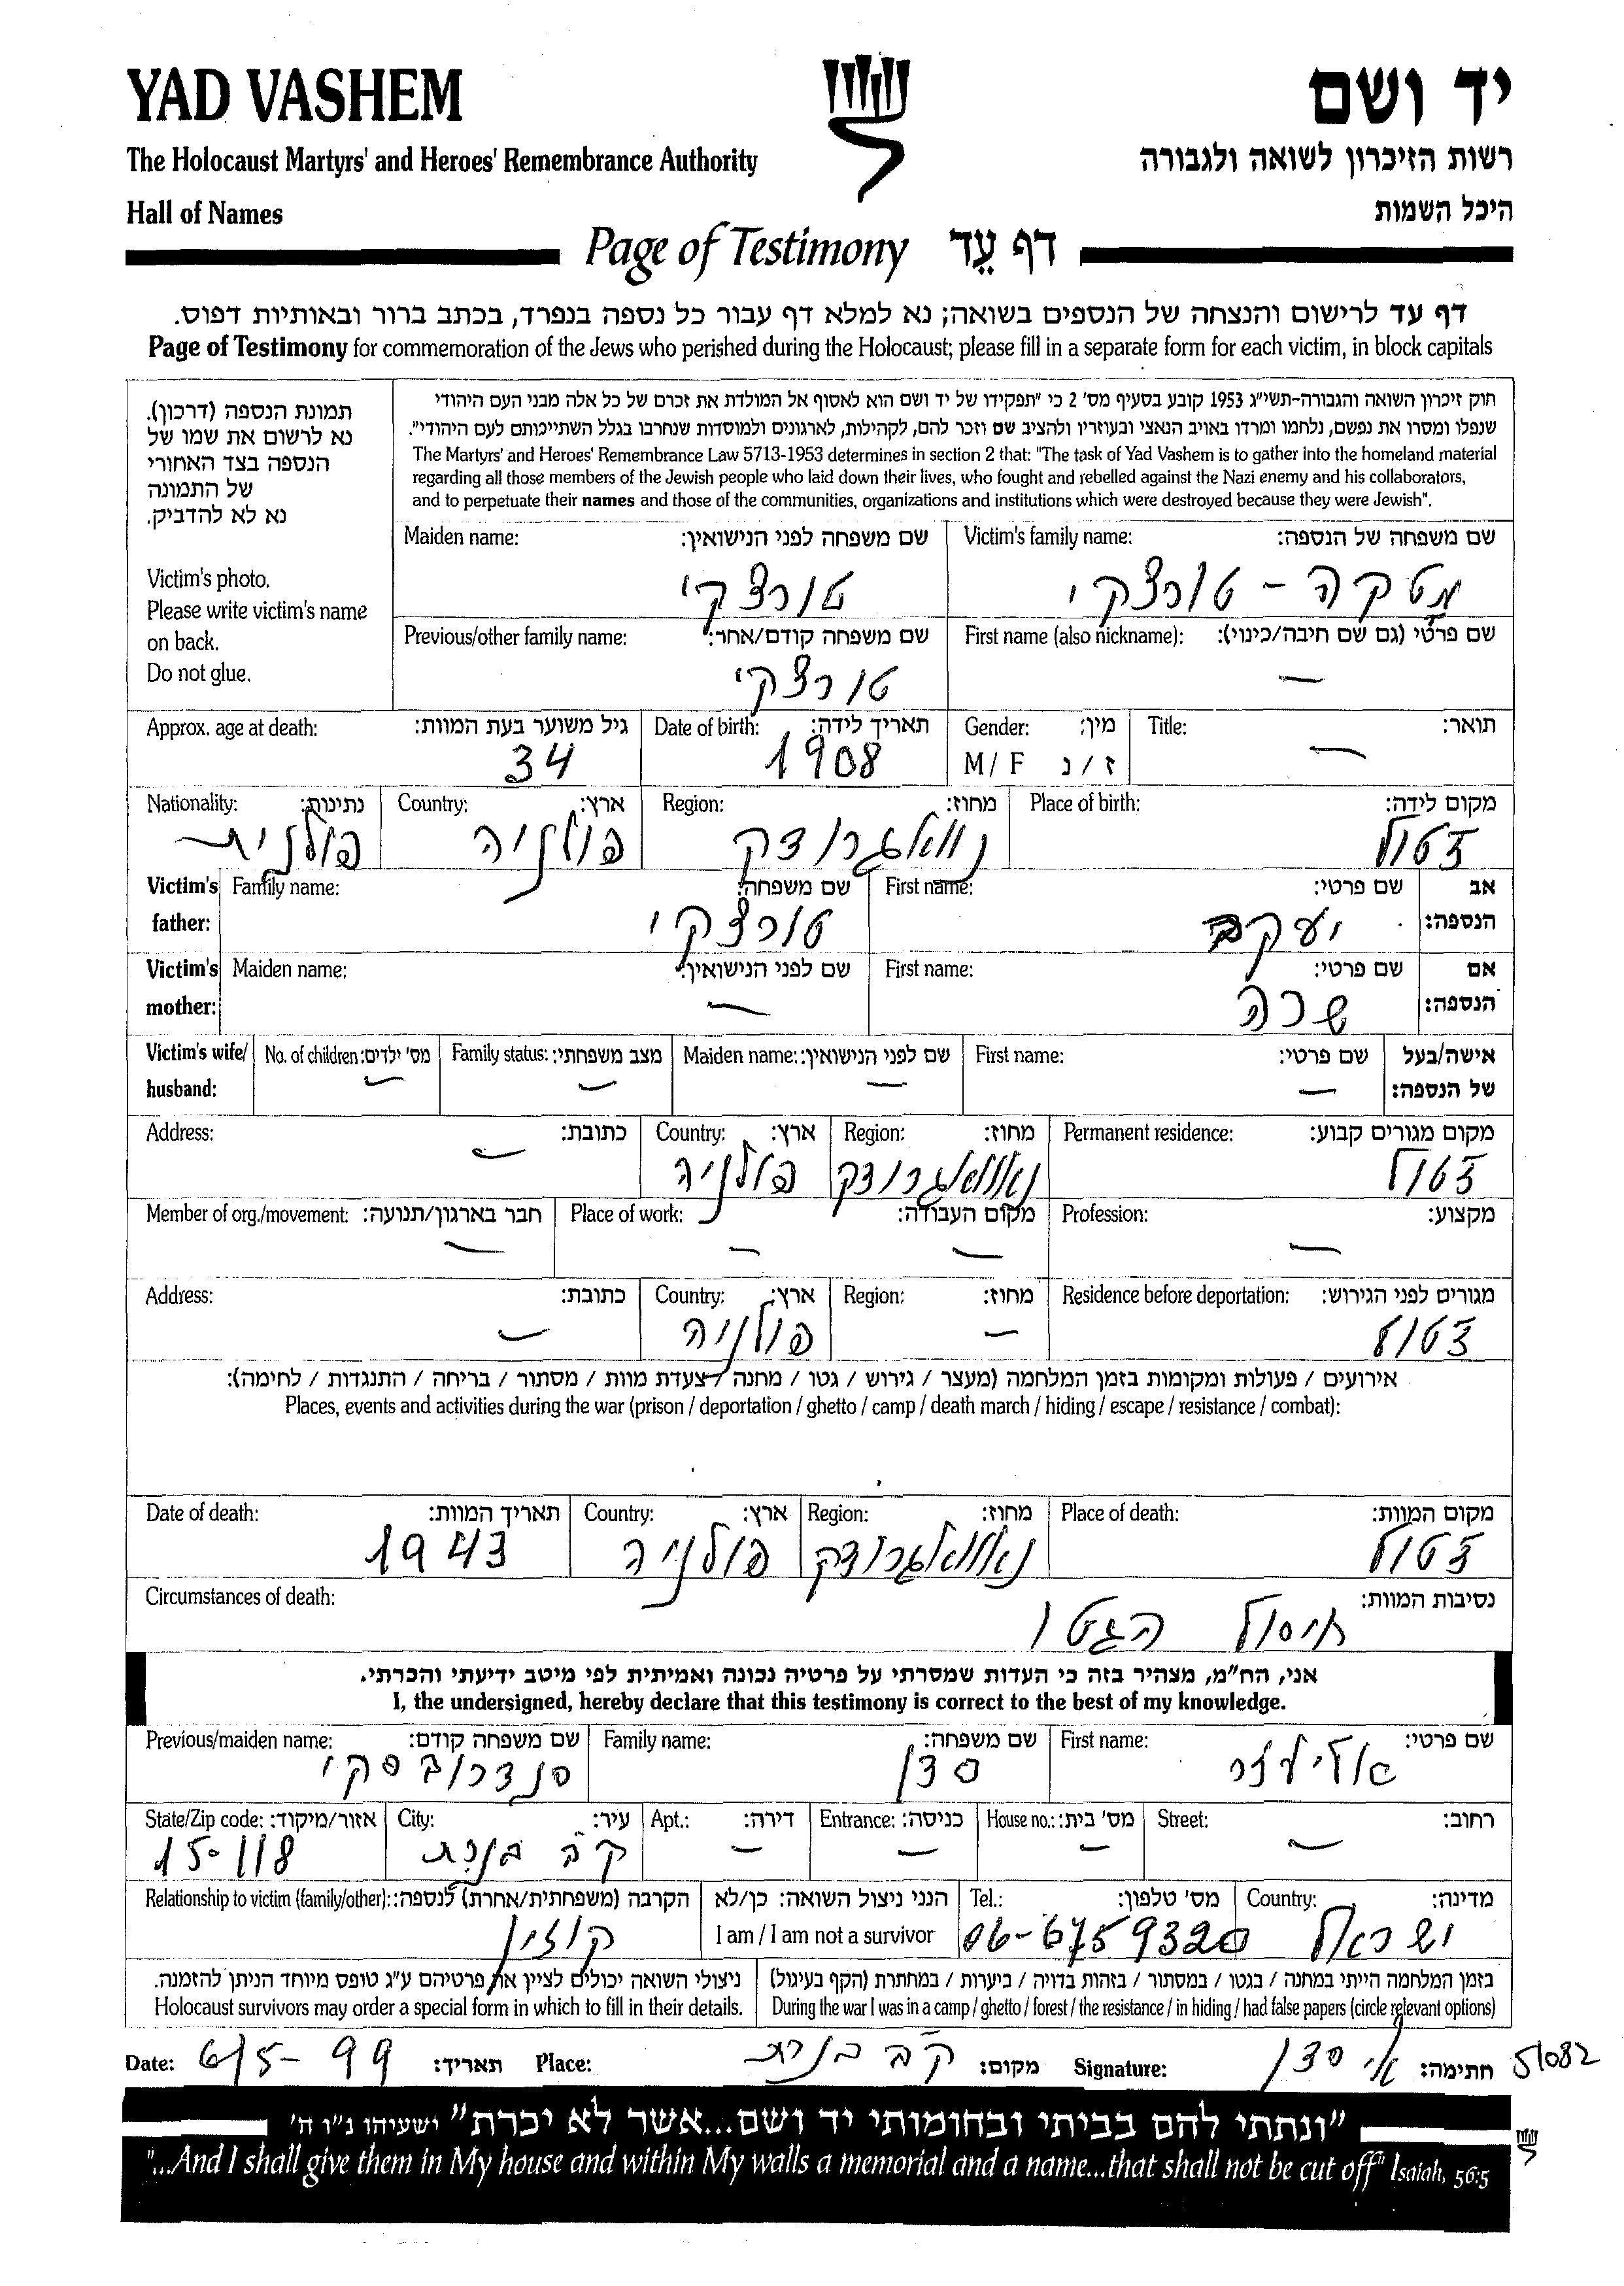 YAD VASHEM
יד ושם
The Holocaust Martyrs' and Heroes' Remembrance Authority
רשות הזיכרון לשואה ולגבורה
Hall of Names
היכל השמות
Page of Testimony דף עֵד
דף עד לרישום והנצחה של הנספים בשואה; נא למלא דף עבור כל נספה בנפרד, בכתב ברור ובאותיות דפוס.
Page of Testimony for commemoration of the Jews who perished during the Holocaust; please fill in a separate form for each victim, in block capitals
תמונת הנספה (דרכון).
נא לרשום את שמו של
הנספה בצד האחורי
של התמונה
נא לא להדביק.
Victim's photo.
Please write victim's name
on back.
Do not glue.
חוק זיכרון השואה והגבורה-תשי"ג 1953 קובע בסעיף מס' 2 כי "תפקידו של יד ושם הוא לאסוף אל המולדת את זכרם של כל אלה מבני העם היהודי
שנפלו ומסרו את נפשם, נלחמו ומרדו באויב הנאצי ובעוזריו ולהציב שם וזכר להם, לקהילות, לארגונים ולמוסדות שנחרבו בגלל השתייכותם לעם היהודי".
The Martyrs' and Heroes' Remembrance Law 5713-1953 determines in section 2 that: "The task of Yad Vashem is to gather into the homeland material
regarding all those members of the Jewish people who laid down their lives, who fought and rebelled against the Nazi enemy and his collaborators,
and to perpetuate their names and those of the communities, organizations and institutions which were destroyed because they were Jewish".
Maiden name: שם משפחה לפני הנישואין: Victim's family name: שם משפחה של הנספה:
טורצקי מטקה - טורצקי
Previous/other family name: שם משפחה קודם/אחר: First name (also nickname): שם פרטי (גם שם חיבה/כינוי):
טורצקי —
Approx. age at death: גיל משוער בעת המוות: Date of birth: תאריך לידה: Gender: מין: Title: תואר:
34 1908 M/F ז/נ —
Nationality: נתינות: Country: ארץ: Region: מחוז: Place of birth: מקום לידה:
פולנית פולניה נוואגרודק זטול
Victim's father: Family name: שם משפחה: First name: שם פרטי: אב הנספה:
טורצקי יעקב
Victim's mother: Maiden name: שם לפני הנישואין: First name: שם פרטי: אם הנספה:
— שרה
Victim's wife/ husband: No. of children: מס' ילדים: Family status: מצב משפחתי: Maiden name: שם לפני הנישואין: First name: שם פרטי: אישה/בעל של הנספה:
— — — —
Address: כתובת: Country: ארץ: Region: מחוז: Permanent residence: מקום מגורים קבוע:
— פולניה נאוואגרודק זטול
Member of org./movement: חבר בארגון/תנועה: Place of work: מקום העבודה: Profession: מקצוע:
— — — —
Address: כתובת: Country: ארץ: Region: מחוז: Residence before deportation: מגורים לפני הגירוש:
— פולניה — זטול
אירועים / פעולות ומקומות בזמן המלחמה (מעצר / גירוש / גטו / מחנה / צעדת מוות / מסתור / בריחה / התנגדות / לחימה):
Places, events and activities during the war (prison / deportation / ghetto / camp / death march / hiding / escape / resistance / combat):
Date of death: תאריך המוות: Country: ארץ: Region: מחוז: Place of death: מקום המוות:
1943 פולניה נאוואגרודק זטול
Circumstances of death: נסיבות המוות:
חיסול הגטו
אני, הח"מ, מצהיר בזה כי העדות שמסרתי על פרטיה נכונה ואמיתית לפי מיטב ידיעתי והכרתי.
I, the undersigned, hereby declare that this testimony is correct to the best of my knowledge.
Previous/maiden name: שם משפחה קודם: Family name: שם משפחה: First name: שם פרטי:
סנדרובסקי סדן אליעזר
State/Zip code: אזור/מיקוד: City: עיר: Apt.: דירה: Entrance: כניסה: House no.: מס' בית: Street: רחוב:
15-118 ק. כנרת — — — —
Relationship to victim (family/other): הקרבה (משפחתית/אחרת) לנספה: הנני ניצול השואה: כן/לא Tel.: מס' טלפון: Country: מדינה:
קוזין I am / I am not a survivor 06-6759320 ישראל
ניצולי השואה יכולים לציין את פרטיהם ע"ג טופס מיוחד הניתן להזמנה. בזמן המלחמה הייתי במחנה / בגטו / במסתור / בזהות בדויה / ביערות / במחתרת (הקף בעיגול)
Holocaust survivors may order a special form in which to fill in their details. During the war I was in a camp / ghetto / forest / the resistance / in hiding / had false papers (circle relevant options)
Date: 6/5-99 תאריך: Place: כנרת מקום: Signature: אלי סדן חתימה: 51082
"ונתתי להם בביתי ובחומותי יד ושם...אשר לא יכרת" ישעיהו נ"ו ה'
"...And I shall give them in My house and within My walls a memorial and a name...that shall not be cut off" Isaiah, 56:5